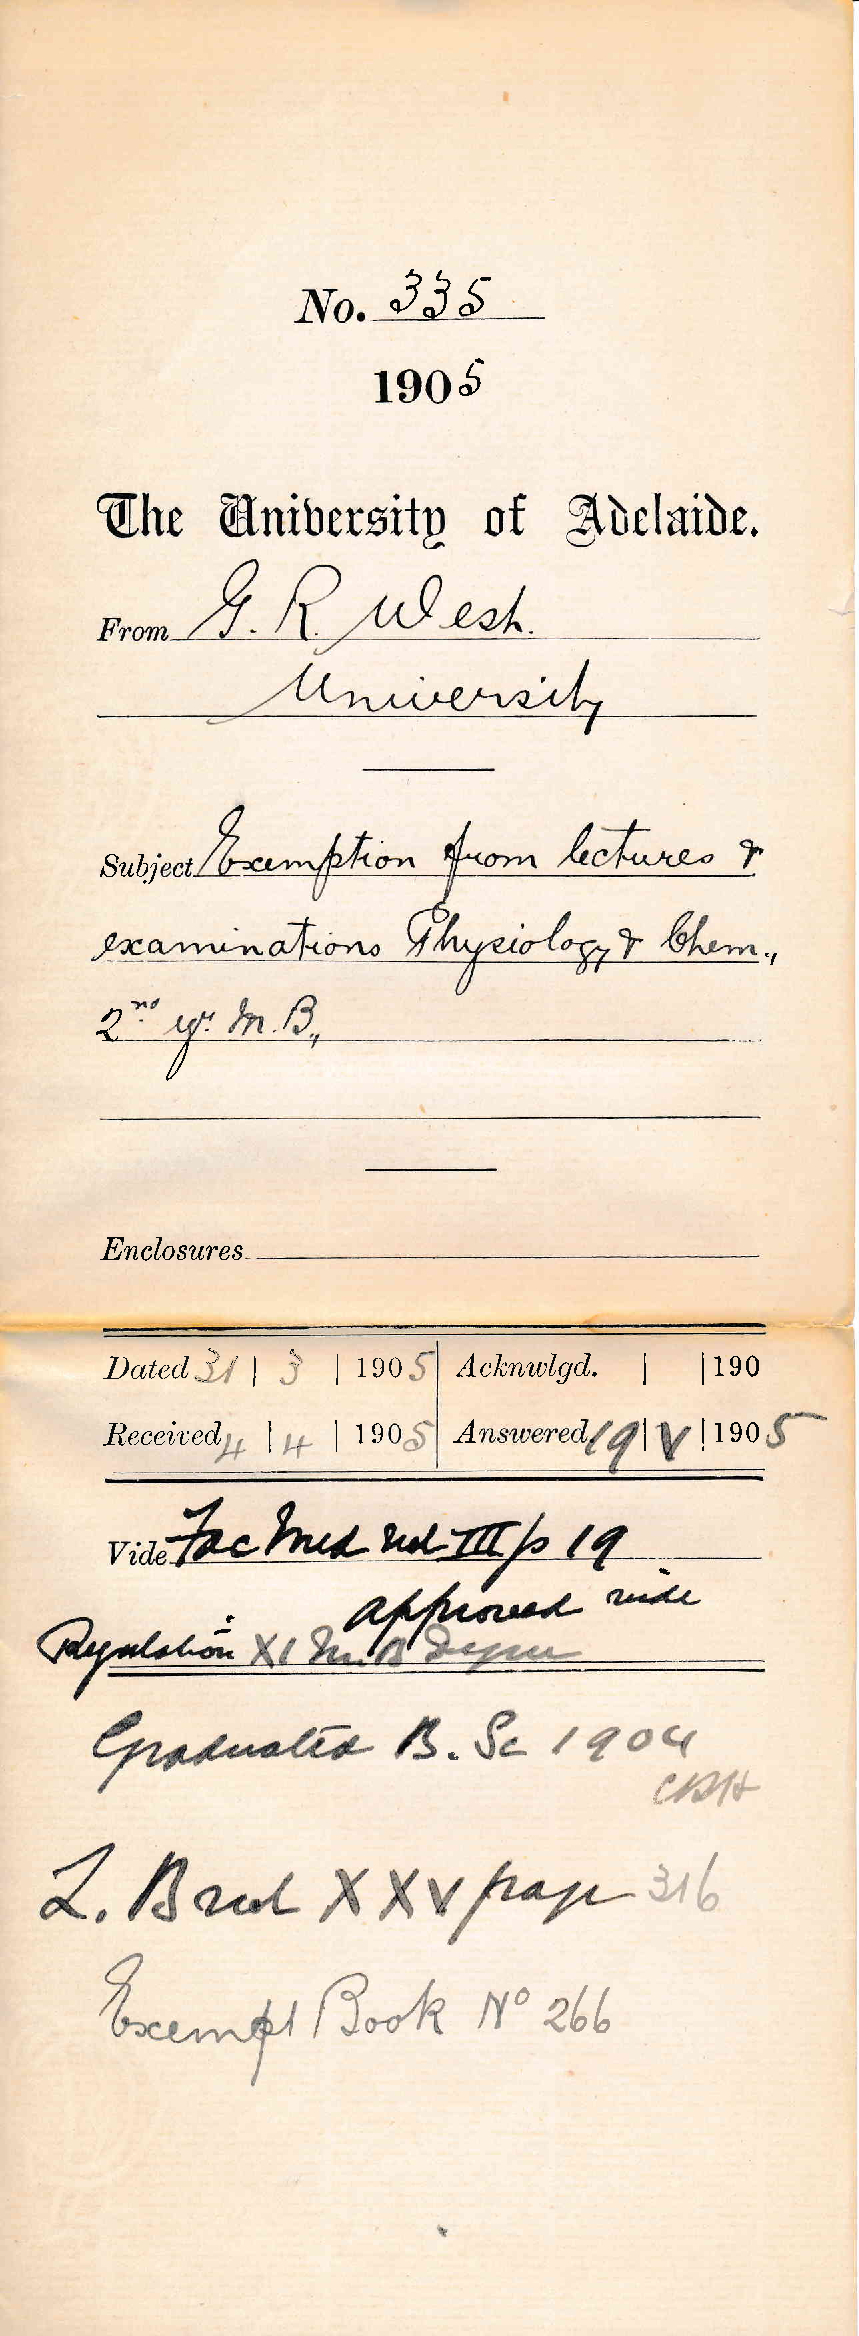 No. 335
1905
The University of Adelaide.
From G. R. West.
University
Subject Exemption from lectures &
examinations Physiology & Chem.,
2nd yr. M.B.,
Enclosures
Dated 31 | 3 | 1905 Acknwlgd. | | 190
Received 4 | 4 | 1905 Answered 19 | V | 1905
Vide Fac Med vol III p 19
approved vide
Regulation XI M.B Degree
Graduated B. Sc 1904
CRH
L. B vol XXV page 316
Exempt Book No 266